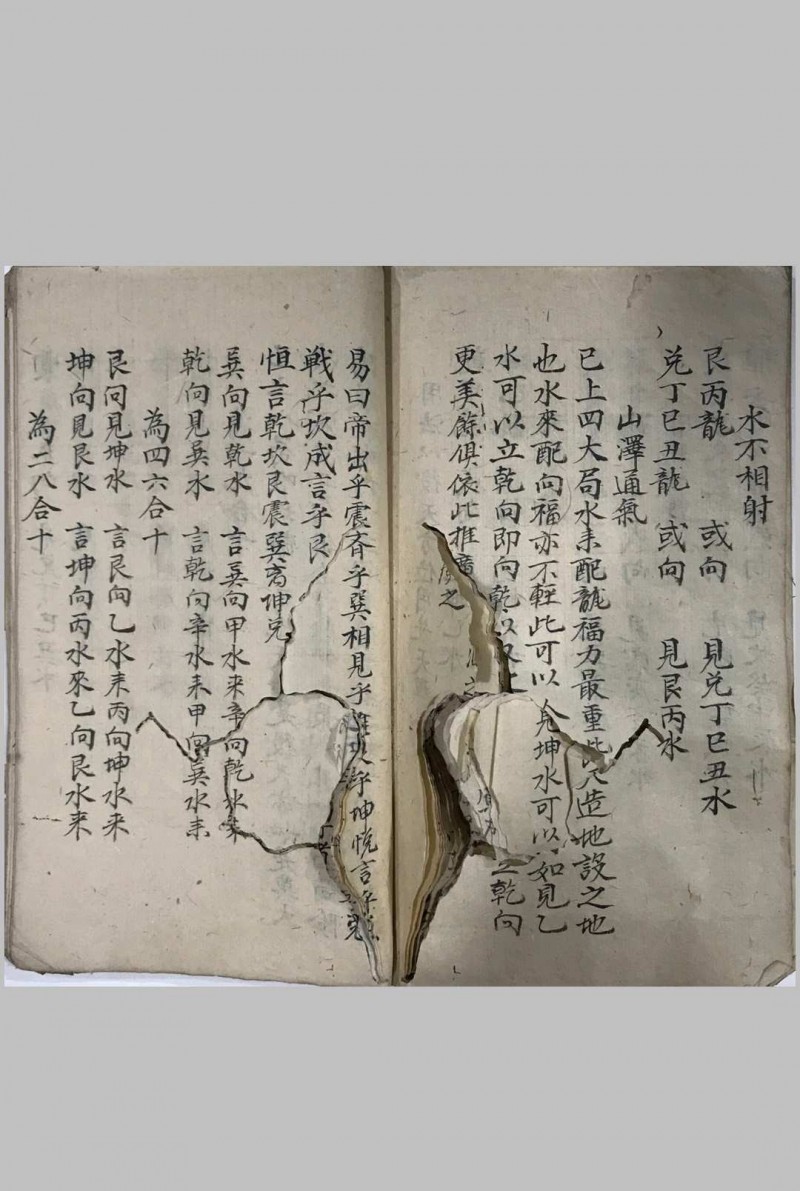 水不相射
艮丙龍 或向 見兌丁巳丑水
兌丁巳丑龍 或向 見艮丙水
山澤通氣
已上四大局水来配龍福力最重此天造地設之地
也水來配向福亦不輕此可以 見坤水可以 如見乙
水可以立乾向即向乾以 立乾向
更美餘俱依此推廣 之
易曰帝出乎震齊乎巽相見乎離 乎坤悅言乎兌
戰乎 坎成言乎艮
恒言乾坎艮震巽离坤兌
巽向見乾水 言巽向甲水来辛向乾水来
乾向見巽水 言乾向辛水来甲向巽水来
為四六合十
艮向見坤水 言艮向乙水来丙向坤水来
坤向見艮水 言坤向丙水來乙向艮水来
為二八合十